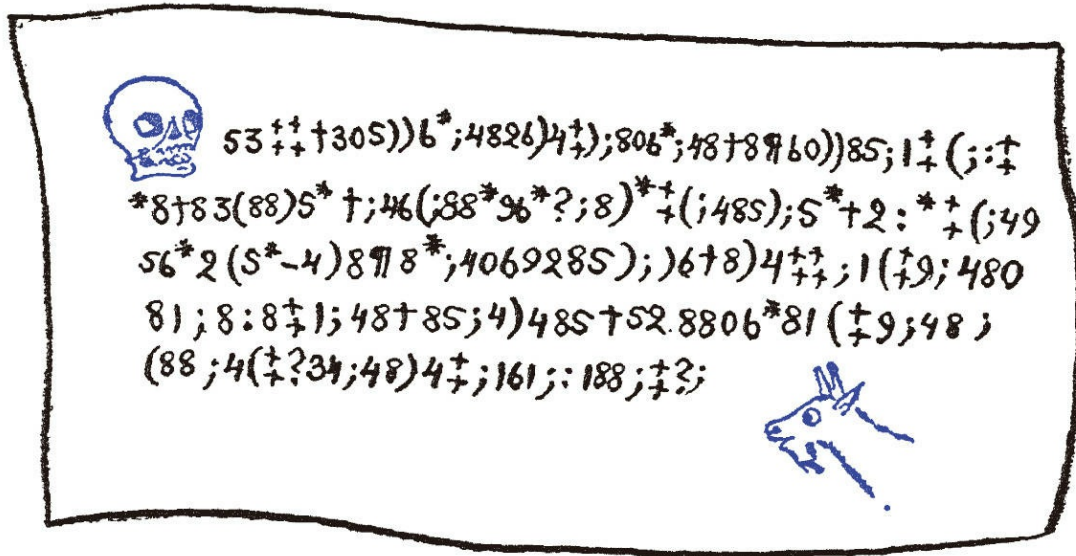 53‡‡†305))6*;4826)4‡);806*;48†8¶60))85;1‡(;:‡
*8†83(88)5*†;46(;88*96*?;8)*‡(;485);5*†2:*‡(;49
56*2(5*-4)8¶8*;4069285);)6†8)4‡‡;1(‡9;480
81;8:8‡1;48†85;4)485†52.8806*81(‡9;48;
(88;4(‡?34;48)4‡;161;:188;‡?;